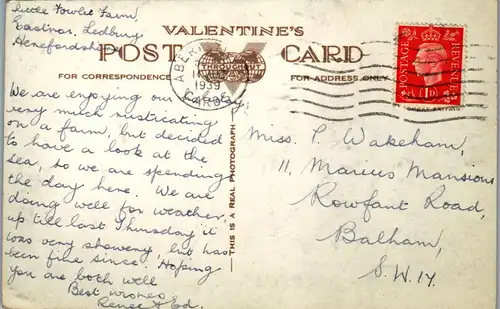 Little Fowlet Farm,
Eastnor, Ledbury
Herefordshire
VALENTINE'S
POST CARD
FOR CORRESPONDENCE
FOR ADDRESS ONLY
1939
CARDS
POSTAGE
REVENUE
1D
We are enjoying our holiday
very much rusticating
on a farm, but decided
to have a look at the
sea, so we are spending
the day here. We are
doing well for weather,
up till last Thursday it
was very showery but has
been fine since. Hoping
you are both well
Best wishes
Renee & Ed.
THIS IS A REAL PHOTOGRAPH
Miss. P. Wakeham,
11, Marius Mansions
Rowfant Road,
Balham,
S.W.17.